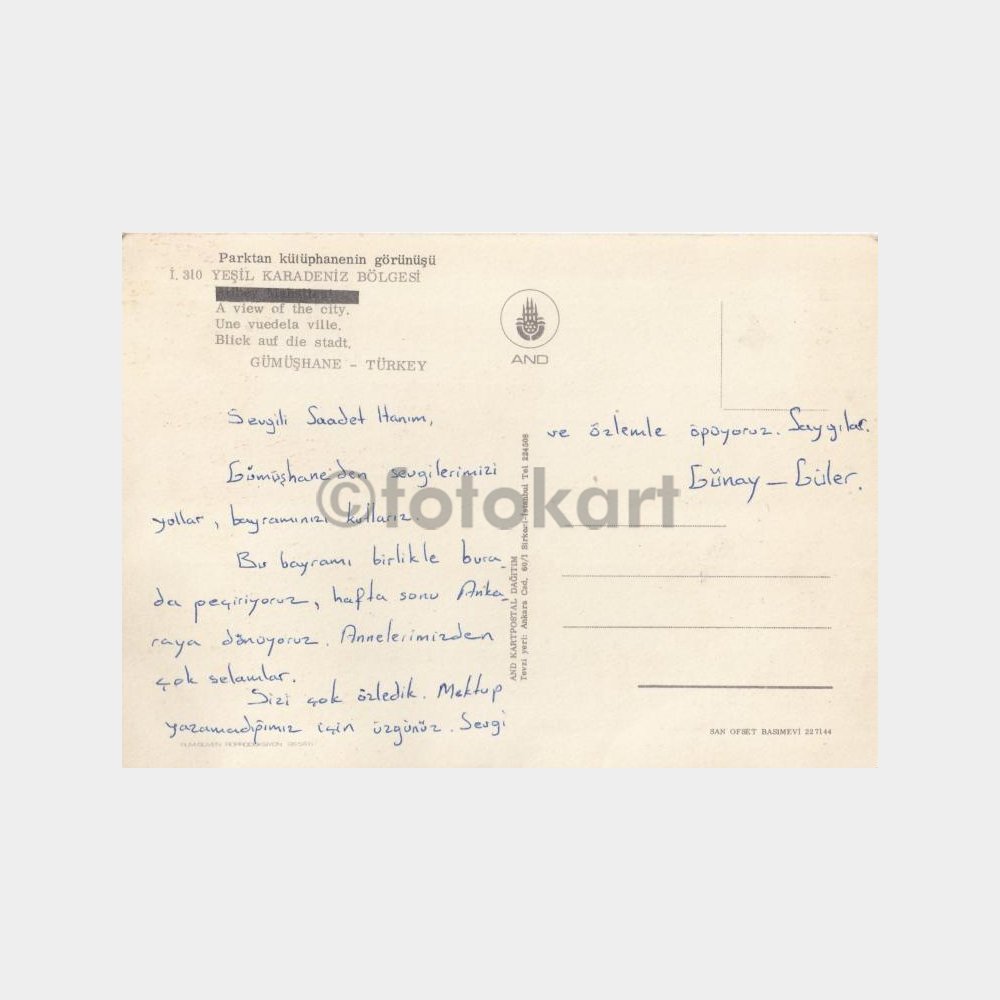 Parktan kütüphanenin görünüşü
İ. 310 YEŞİL KARADENİZ BÖLGESİ
A view of the city.
Une vuedela ville.
Blick auf die stadt.
GÜMÜŞHANE - TÜRKEY
AND
Sevgili Saadet Hanım,
Gümüşhane'den sevgilerimizi
yollar, bayramınızı kutlarız.
Bu bayramı birlikte bura-
da geçiriyoruz, hafta sonu Anka-
raya dönüyoruz. Annelerimizden
çok selamlar.
Sizi çok özledik. Mektup
yazamadığımız için üzgünüz. Sevgi
ve özlemle öpüyoruz. Saygılar.
Günay - Güler.
AND KARTPOSTAL DAĞITIM
Tevzi yeri: Ankara Cad. 60/1 Sirkeci-İstanbul Tel 224508
SAN OFSET BASIMEVİ 227144
©fotokart